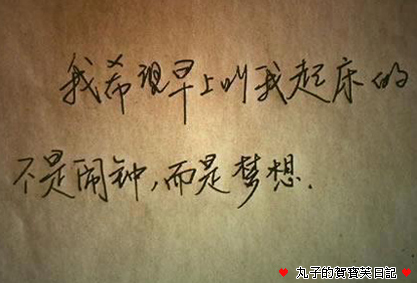 我希现早上叫我起床的
不是闹钟,而是梦想.
❤ 丸子的賀寶芙日記 ❤